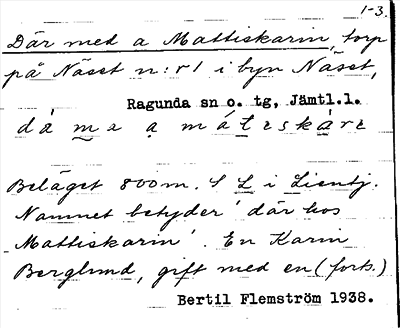 1-3.
Där med a Mattiskarin, torp
på Näset n:r 1 i byn Näset,
Ragunda sn o. tg, Jämtl.l.
Beläget 800 m. S L i Lientj.
Namnet betyder 'där hos
Mattiskarin'. En Karin
Berglund, gift med en (forts.)
Bertil Flemström 1938.